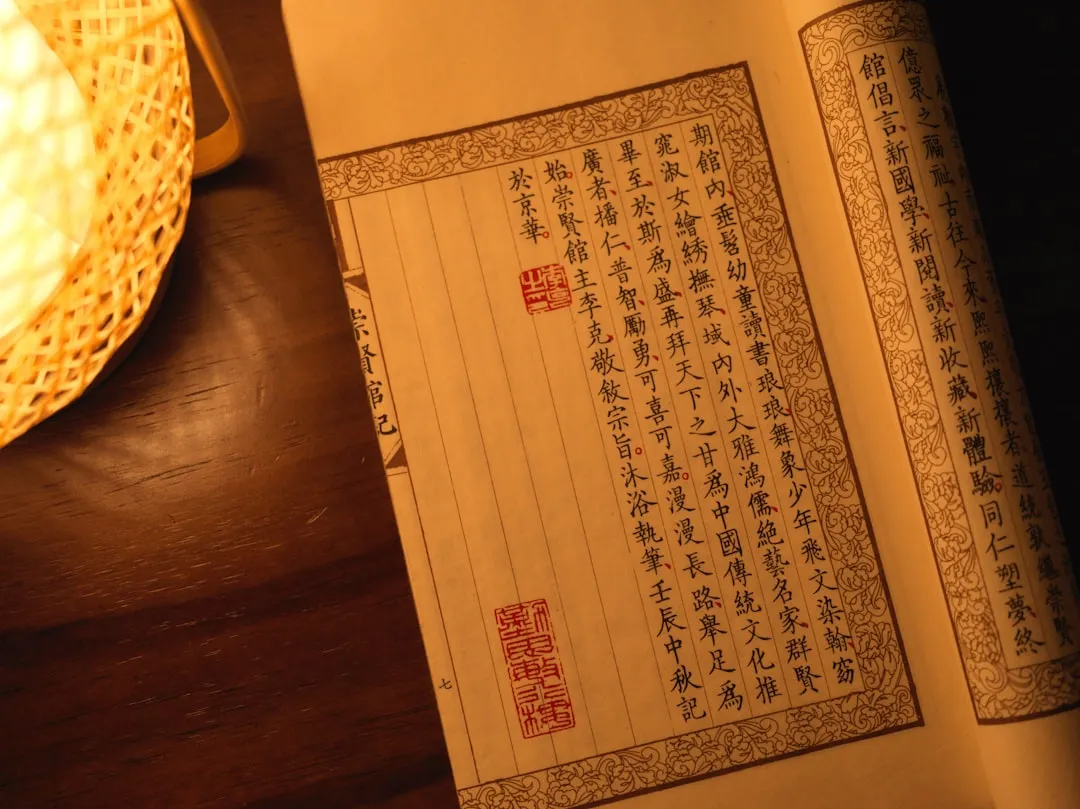 億眾之福祉、古往今來、熙熙攘攘者、道統
館倡言、新國學、新閱讀、新收藏、新體驗。同仁塑夢、終
期館內、垂髫幼童讀書琅琅、舞象少年飛文染翰、窈
窕淑女繪綉撫琴、域內外大雅鴻儒、絕藝名家、群賢
畢至、於斯為盛、再拜天下之甘為中國傳統文化推
廣者、播仁、普智、勵勇、可喜可嘉。漫漫長路、舉足為
始。崇賢館主李克、敬敘宗旨。沐浴執筆、壬辰中秋記
於京華。
崇賢館記
七